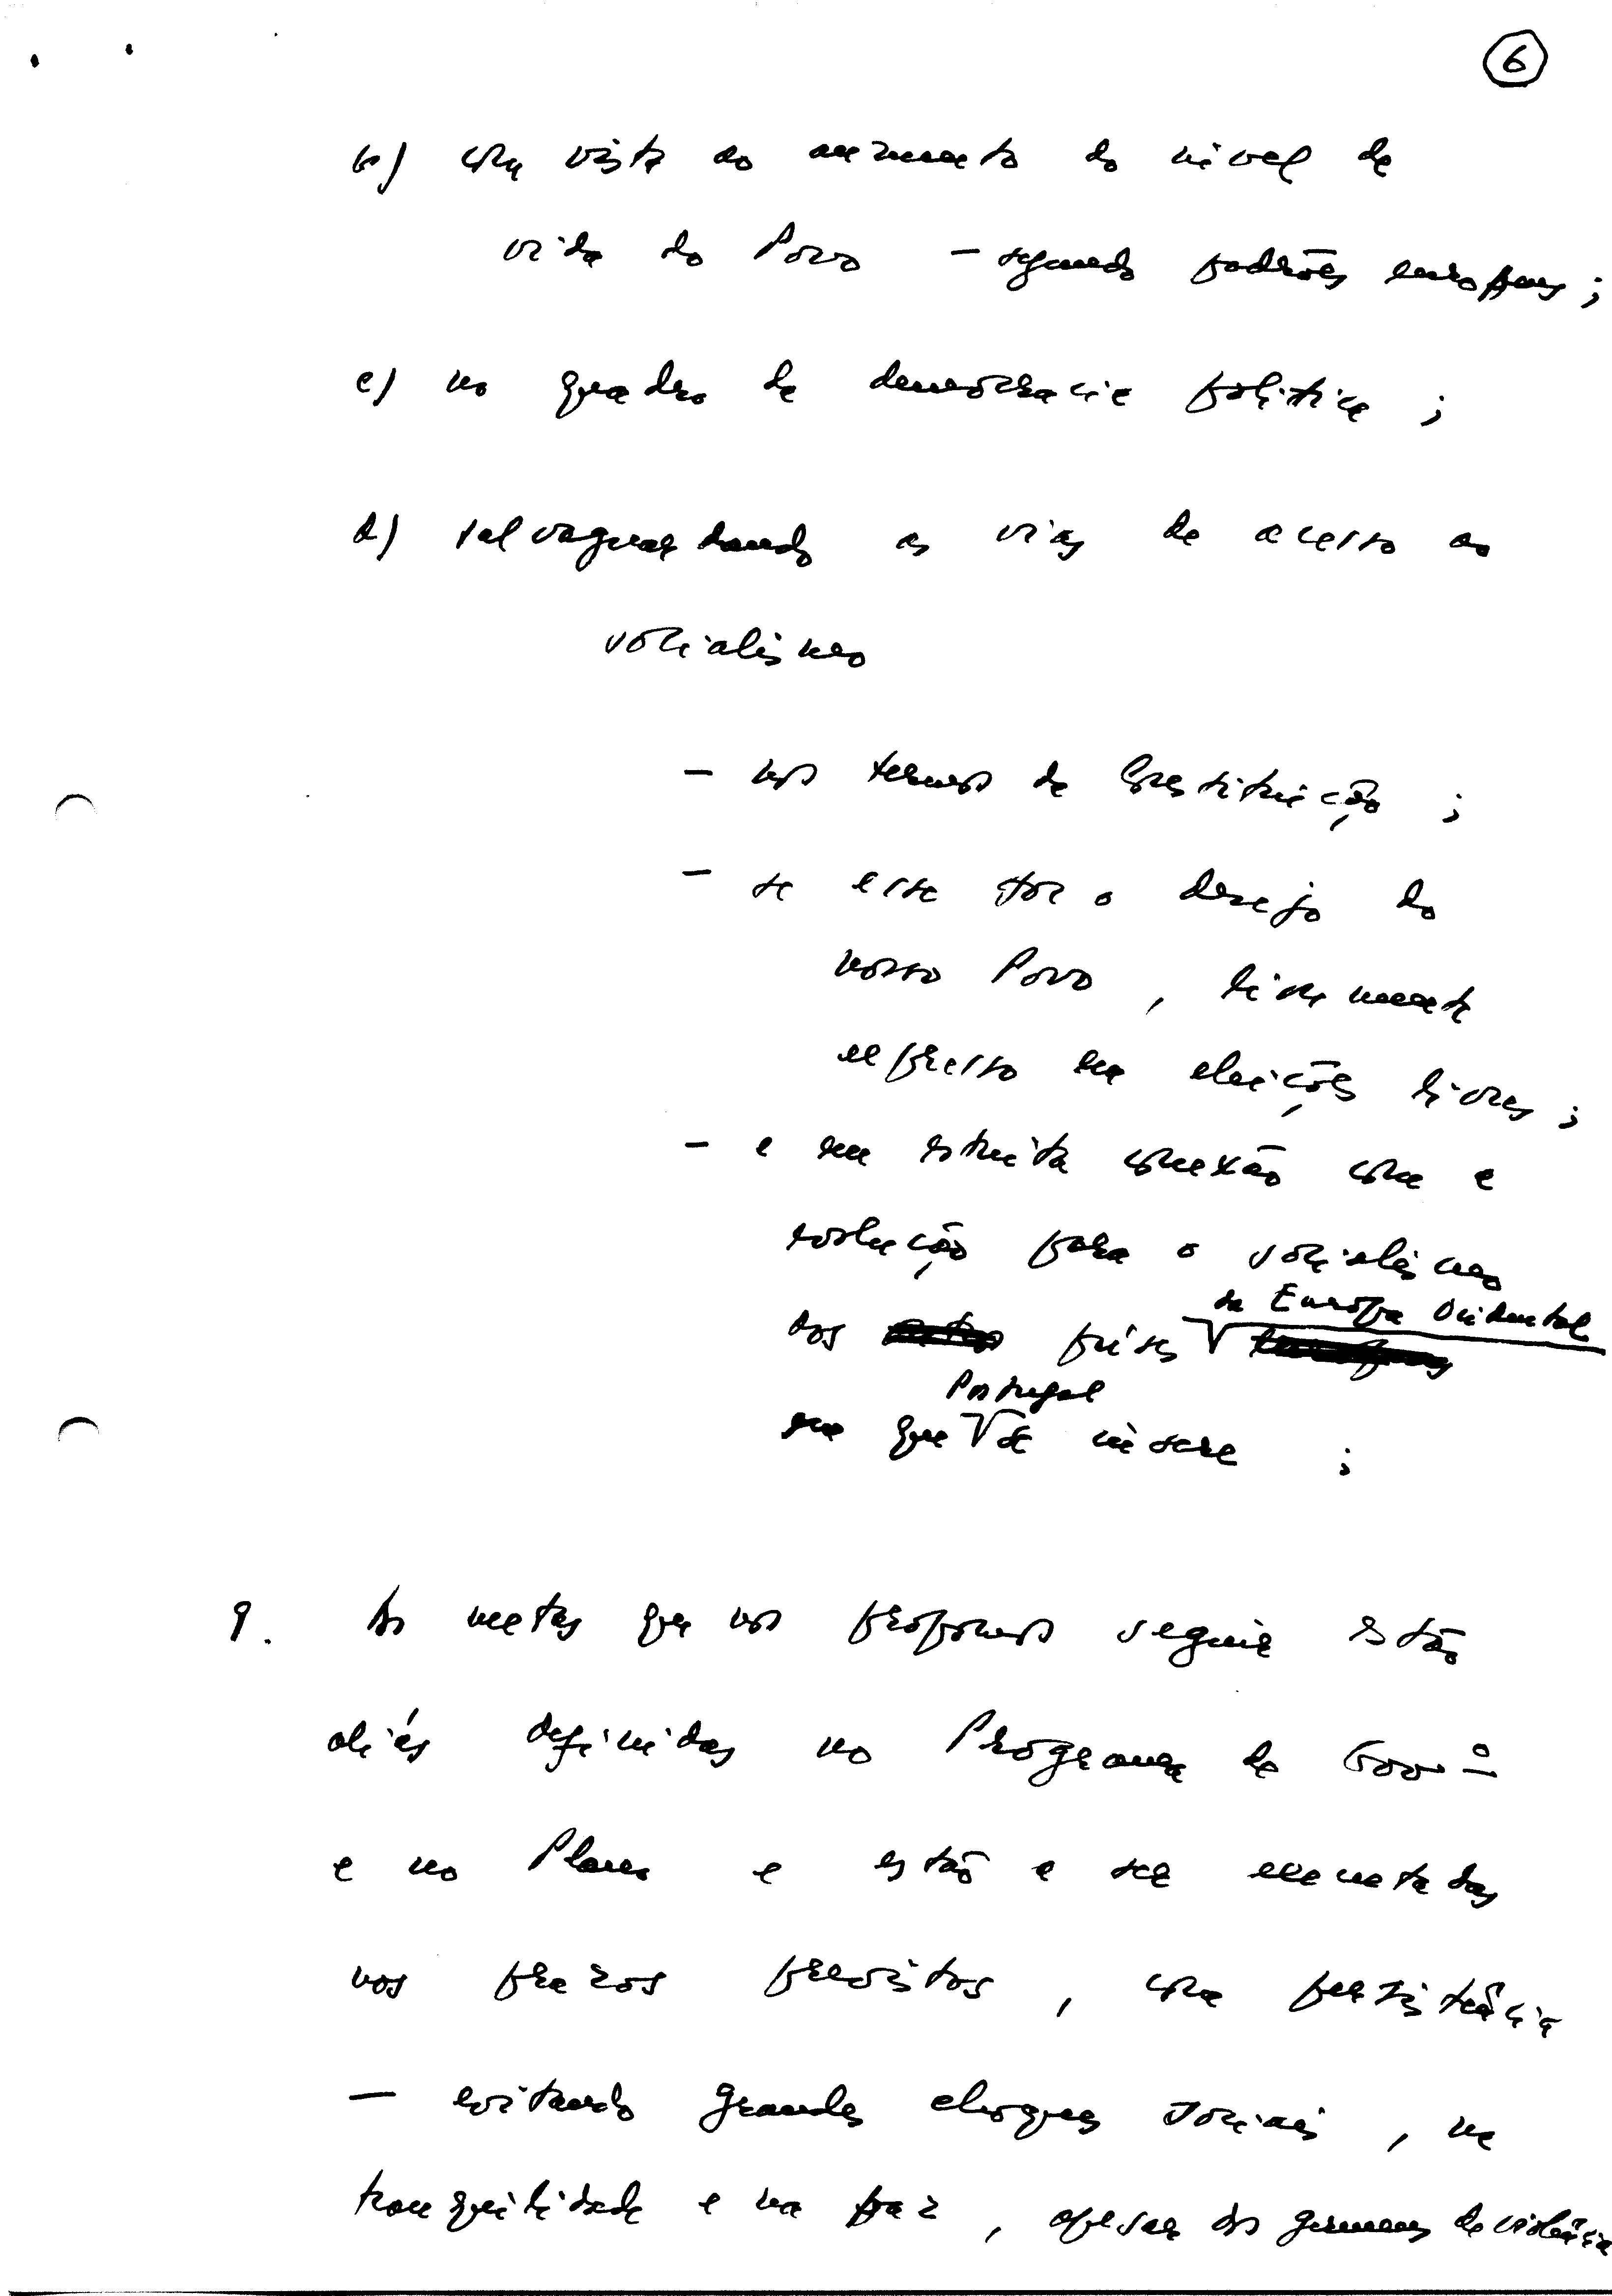 6
b) com vista ao aumento do nível de
vida do Povo – segundo padrões europeus ;
c) no quadro da democracia política ;
d) salvaguardando as vias de acesso ao
socialismo
– nos termos da Constituição ;
– se esse for o desejo do
nosso Povo , livremente
expresso em eleições livres ;
– e em estreita conexão com a
evolução para o socialismo
da Europa Ocidental
dos países
Portugal
em que se insere ;
9. As metas que nos propomos seguir estão
aliás definidas no Programa do Gov.º
e no Plano e estão a ser executadas
nos prazos previstos , com persistência
– evitando grandes choques sociais , na
tranquilidade e na paz , apesar dos germens de violência